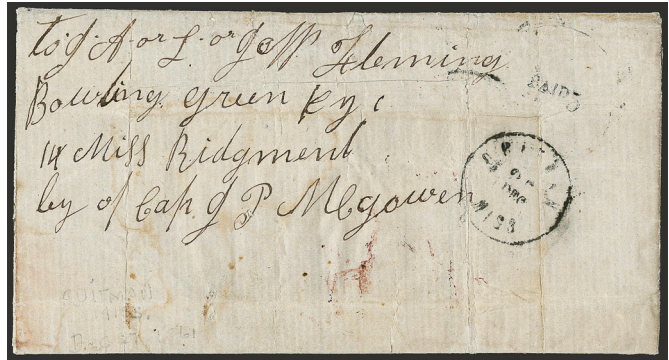 to J. A. or L. or Jo Fleming
Bowling green Ky
14 Miss Ridgment
by of Cap J P Mcgowen
PAID
DEC
MISS
QUITMAN